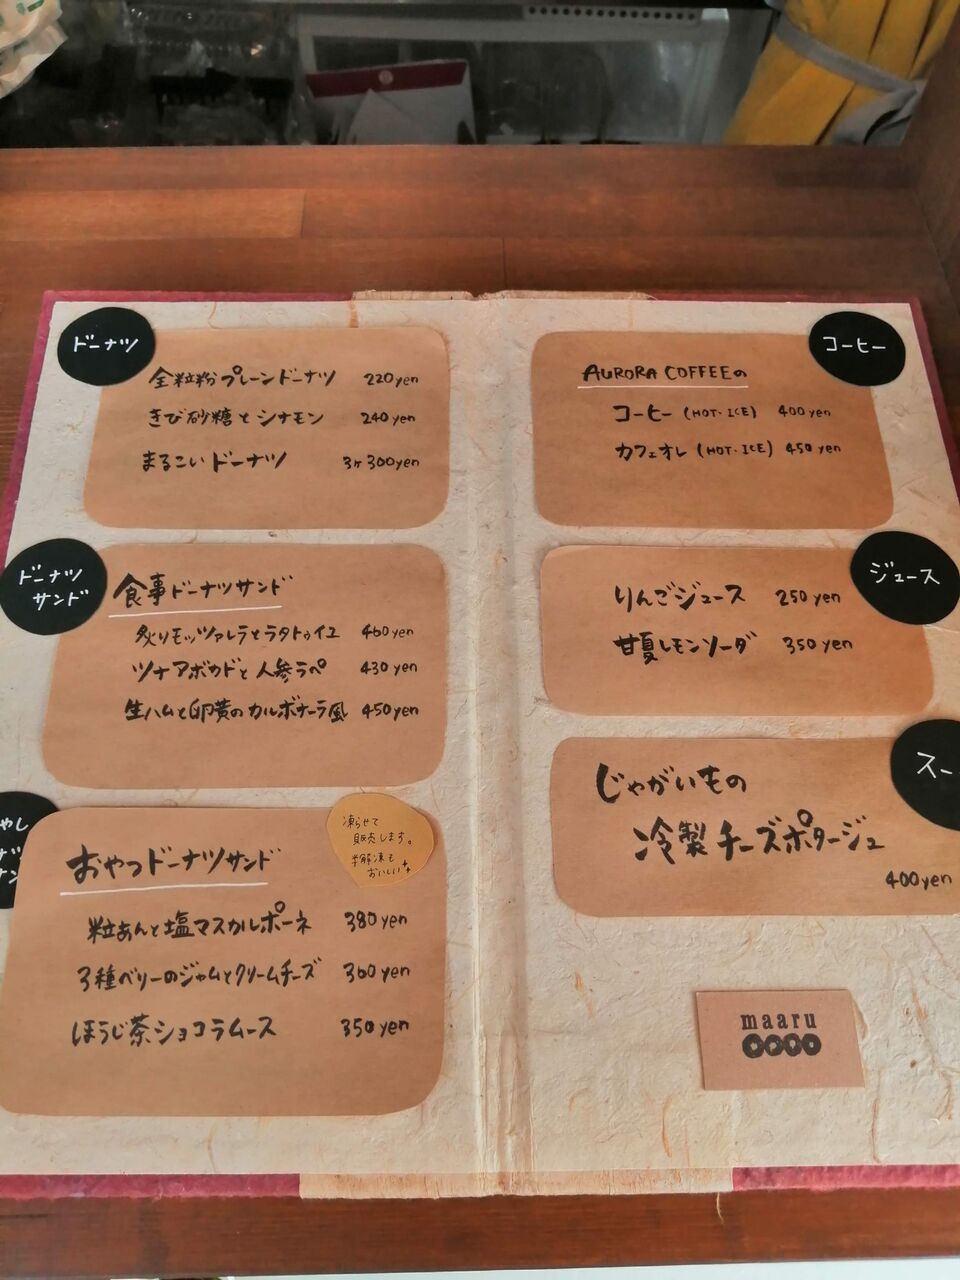 ドーナツ
全粒粉プレーンドーナツ 220yen
きび砂糖とシナモン 240yen
まるこいドーナツ 3ヶ300yen
ドーナツ
サンド
食事ドーナツサンド
炙りモッツァレラとラタトゥイユ 460yen
ツナアボカドと人参ラペ 430yen
生ハムと卵黄のカルボナーラ風 450yen
やし
おやつドーナツサンド
凍らせて
販売します。
半解凍も
おいしい
粒あんと塩マスカルポーネ 380yen
3種ベリーのジャムとクリームチーズ 360yen
ほうじ茶ショコラムース 350yen
コーヒー
AURORA COFFEEの
コーヒー (HOT・ICE) 400yen
カフェオレ (HOT・ICE) 450yen
ジュース
りんごジュース 250yen
甘夏レモンソーダ 350yen
スー
じゃがいもの
冷製チーズポタージュ
400yen
maaru